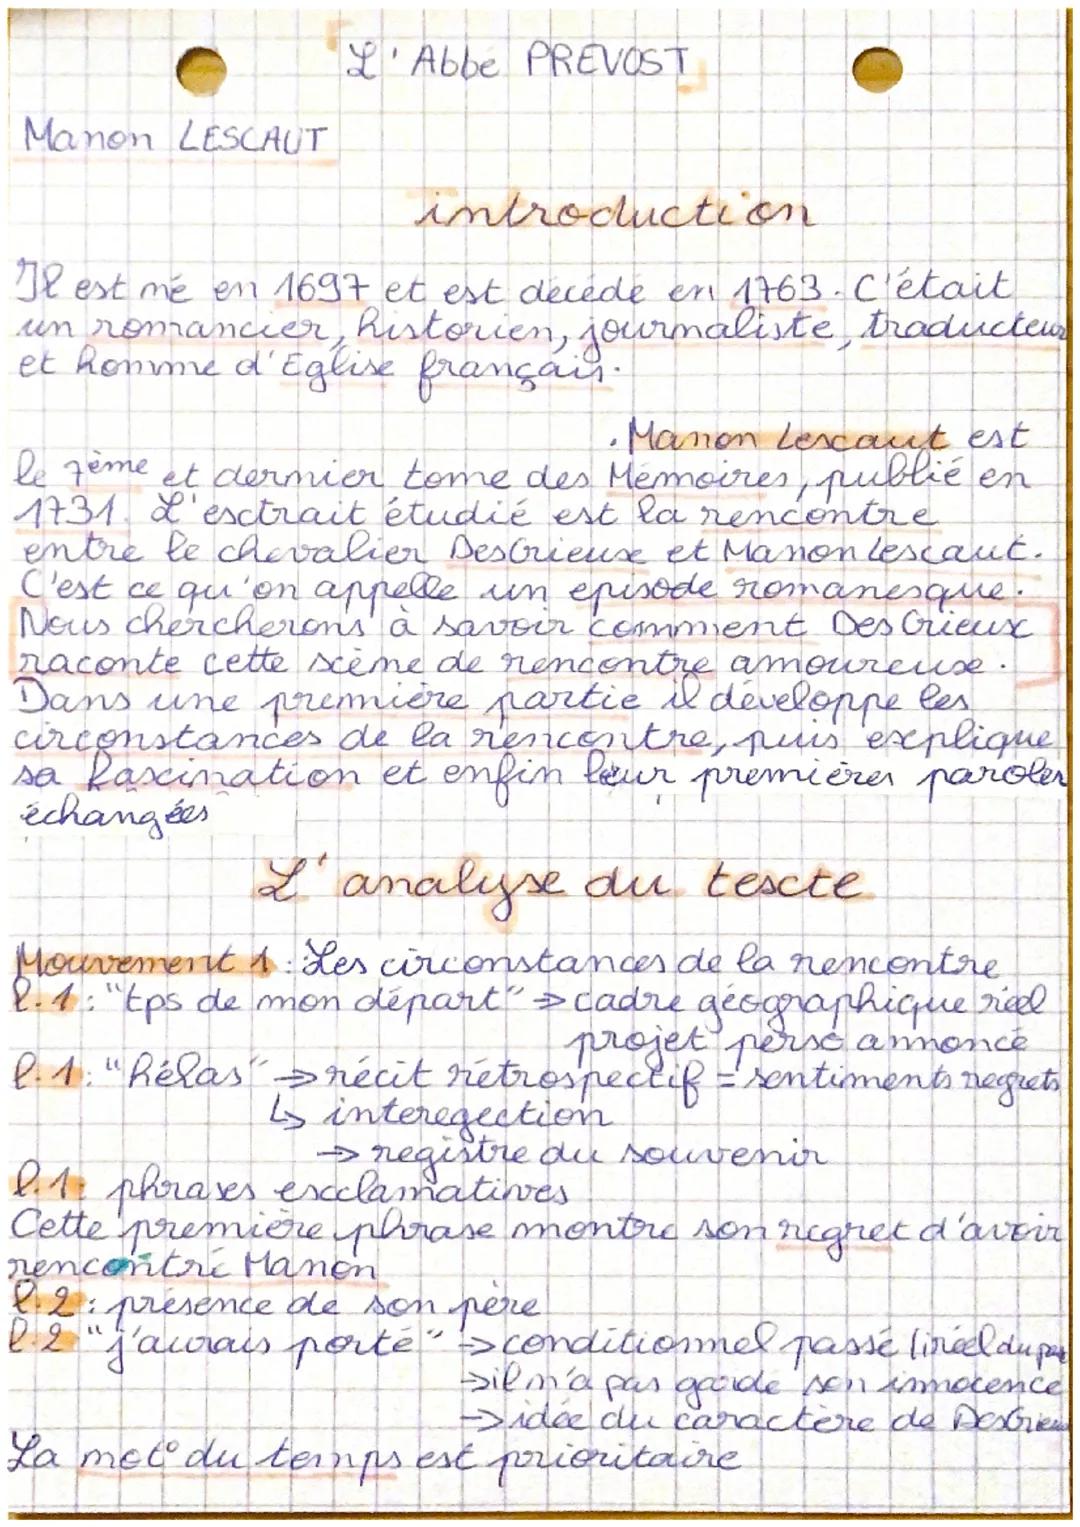 L'Abbé PREVOST
Manon LESCAUT
introduction
Il est né en 1697 et est décédé en 1763. C'était
un romancier, historien, journaliste, traducteur
et homme d'Eglise français.
. Manon Lescaut est
le 7ème et dernier tome des Mémoires, publié en
1731. L'extrait étudié est la rencontre
entre le chevalier DesGrieux et Manon Lescaut.
C'est ce qu'on appelle un episode romanesque.
Nous chercherons à savoir comment DesGrieux
raconte cette scème de rencontre amoureuse.
Dans une première partie il développe les
circonstances de la rencontre, puis explique
sa fascination et enfin leur premières paroles
échangées
L'analyse du texte
Mouvement 1 : Les circonstances de la rencontre
l.1 : "tps de mon départ" → cadre géographique réel
projet perso annoncé
l.1 : "hélas" → récit rétrospectif = sentiments regrets
↳ interegection
→ registre du souvenir
l.1 : phrases exclamatives
Cette première phrase montre son regret d'avoir
rencontré Manon
l.2 : présence de son père
l.2 "j'aurais porté" → conditionnel passé (iréel du
→ il n'a pas garde son innocence
→ idée du caractère de DesGrieux
La mot° du temps est prioritaire